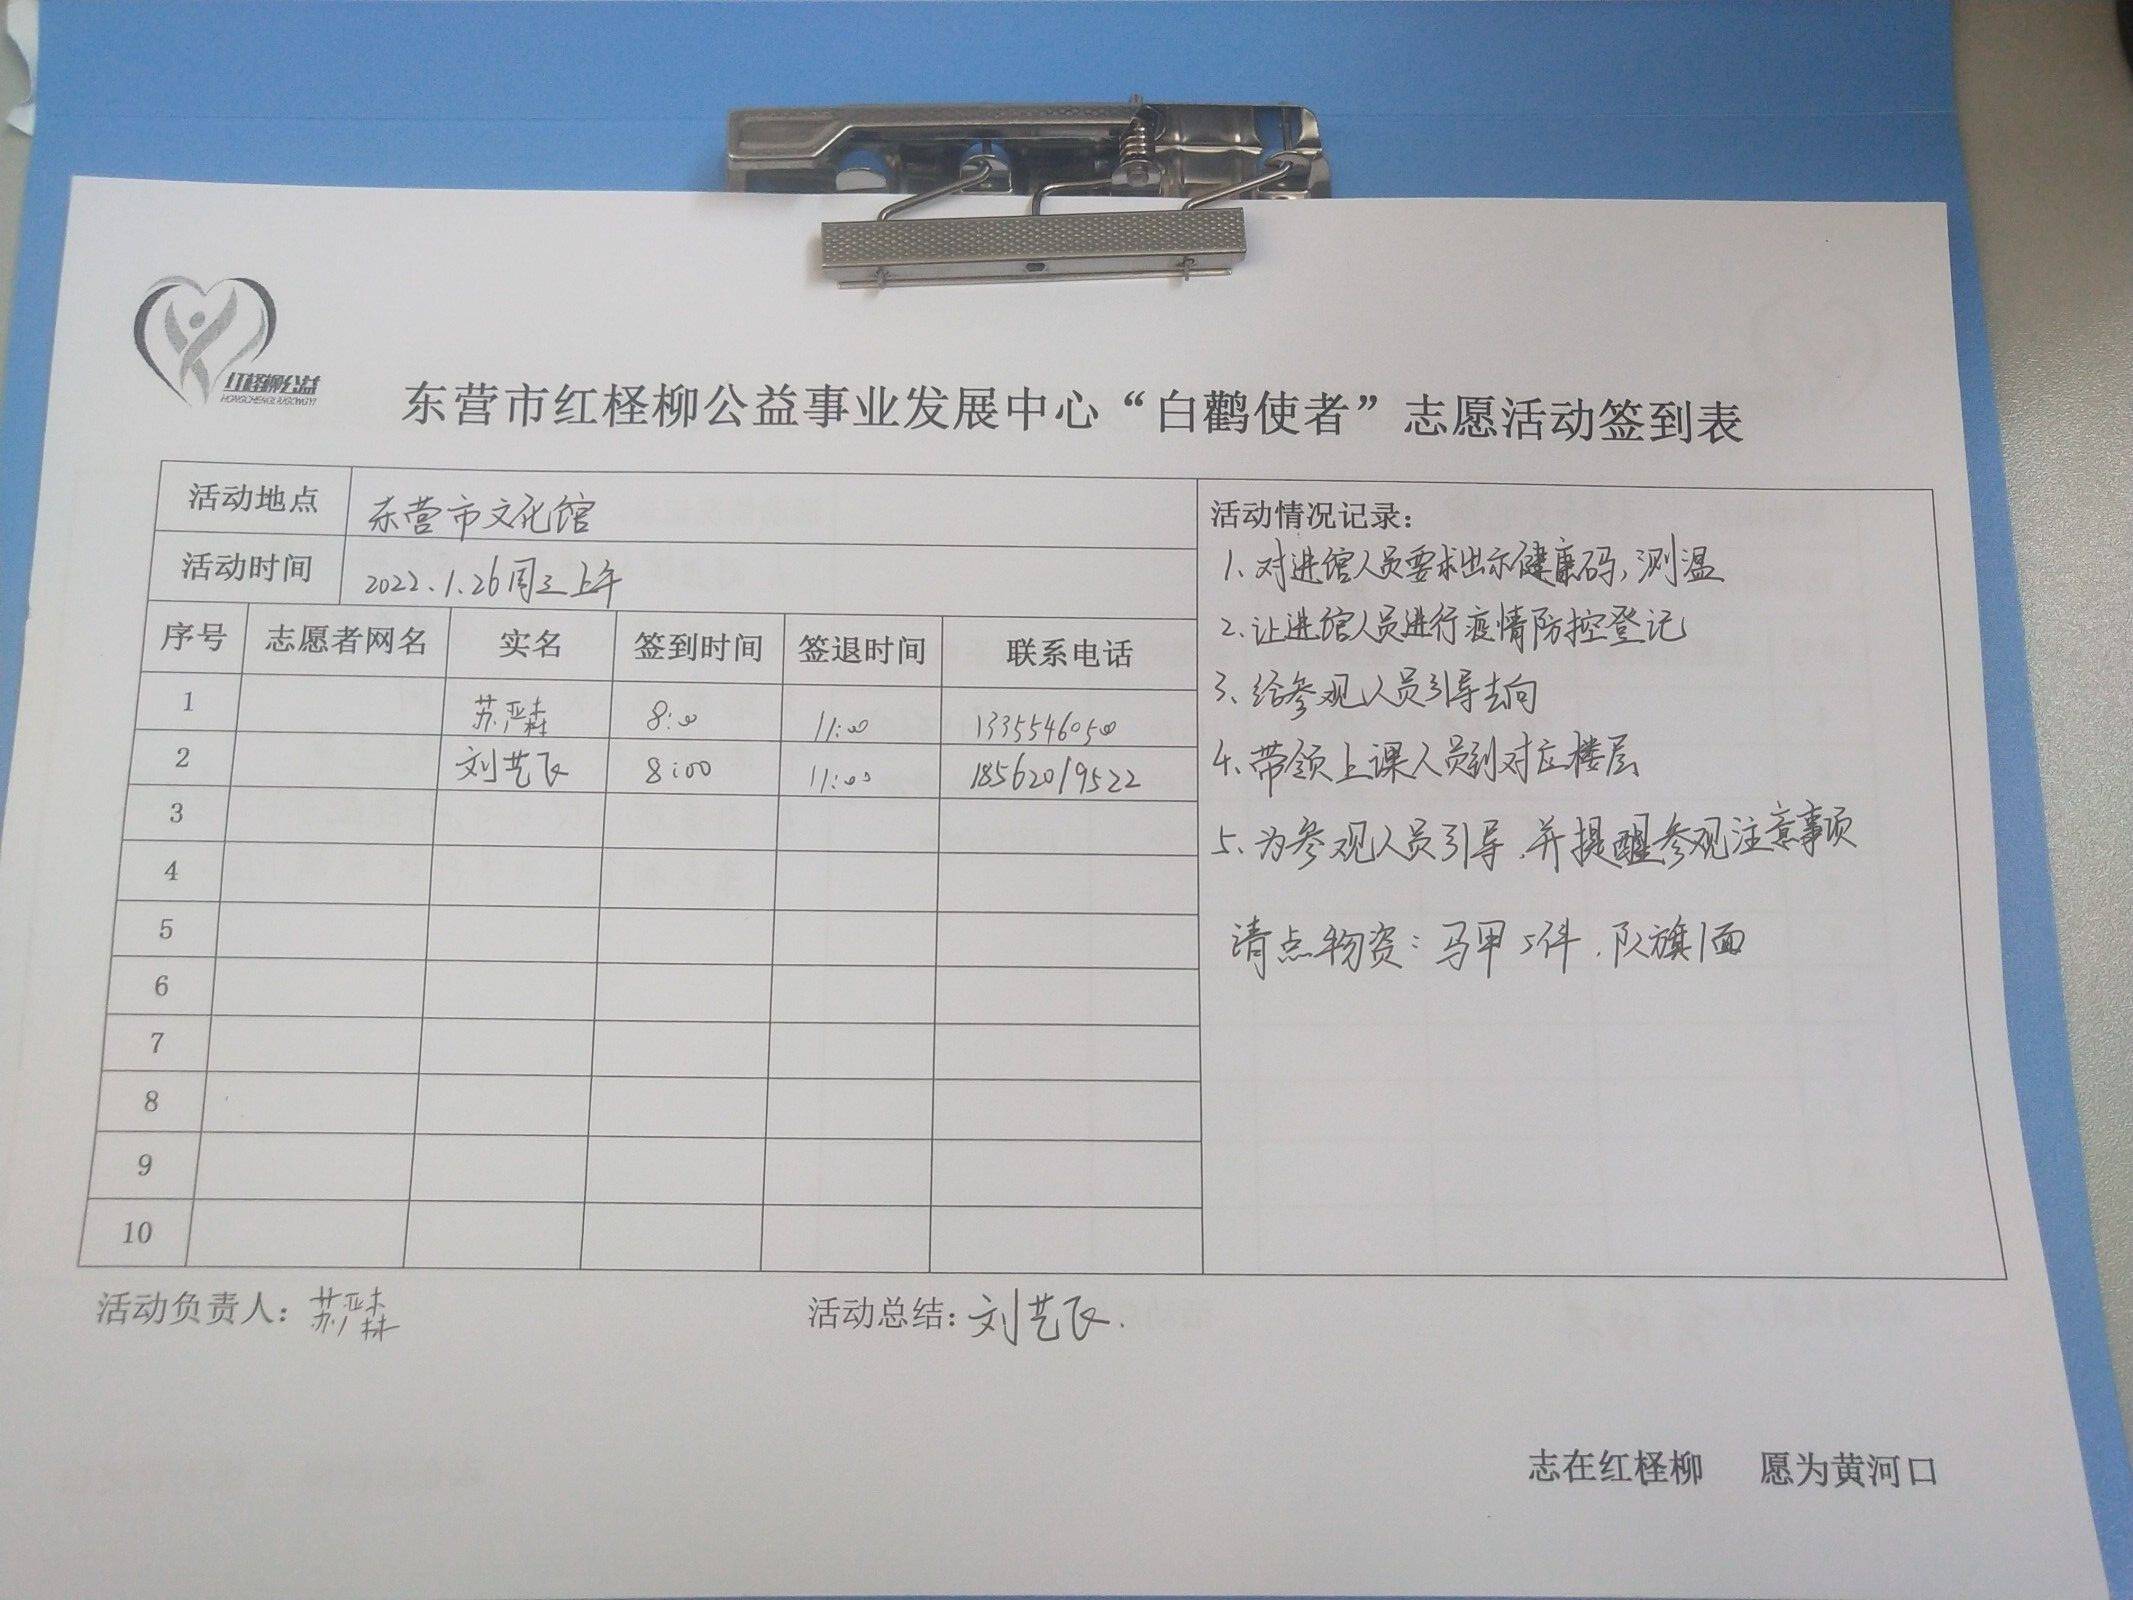 红柽柳公益
HONGCHENGLIUGONGYI
东营市红柽柳公益事业发展中心“白鹳使者”志愿活动签到表
活动地点 东营市文化馆
活动时间 2022.1.26周三上午
序号 志愿者网名 实名 签到时间 签退时间 联系电话
1 苏严森 8:00 11:00 13355460500
2 刘艺飞 8:00 11:00 18562019522
3
4
5
6
7
8
9
10
活动情况记录:
1、对进馆人员要求出示健康码,测温
2、让进馆人员进行疫情防控登记
3、给参观人员引导去向
4、带领上课人员到对应楼层
5、为参观人员引导,并提醒参观注意事项
清点物资:马甲5件,队旗1面
活动负责人:苏严森
活动总结:刘艺飞.
志在红柽柳 愿为黄河口